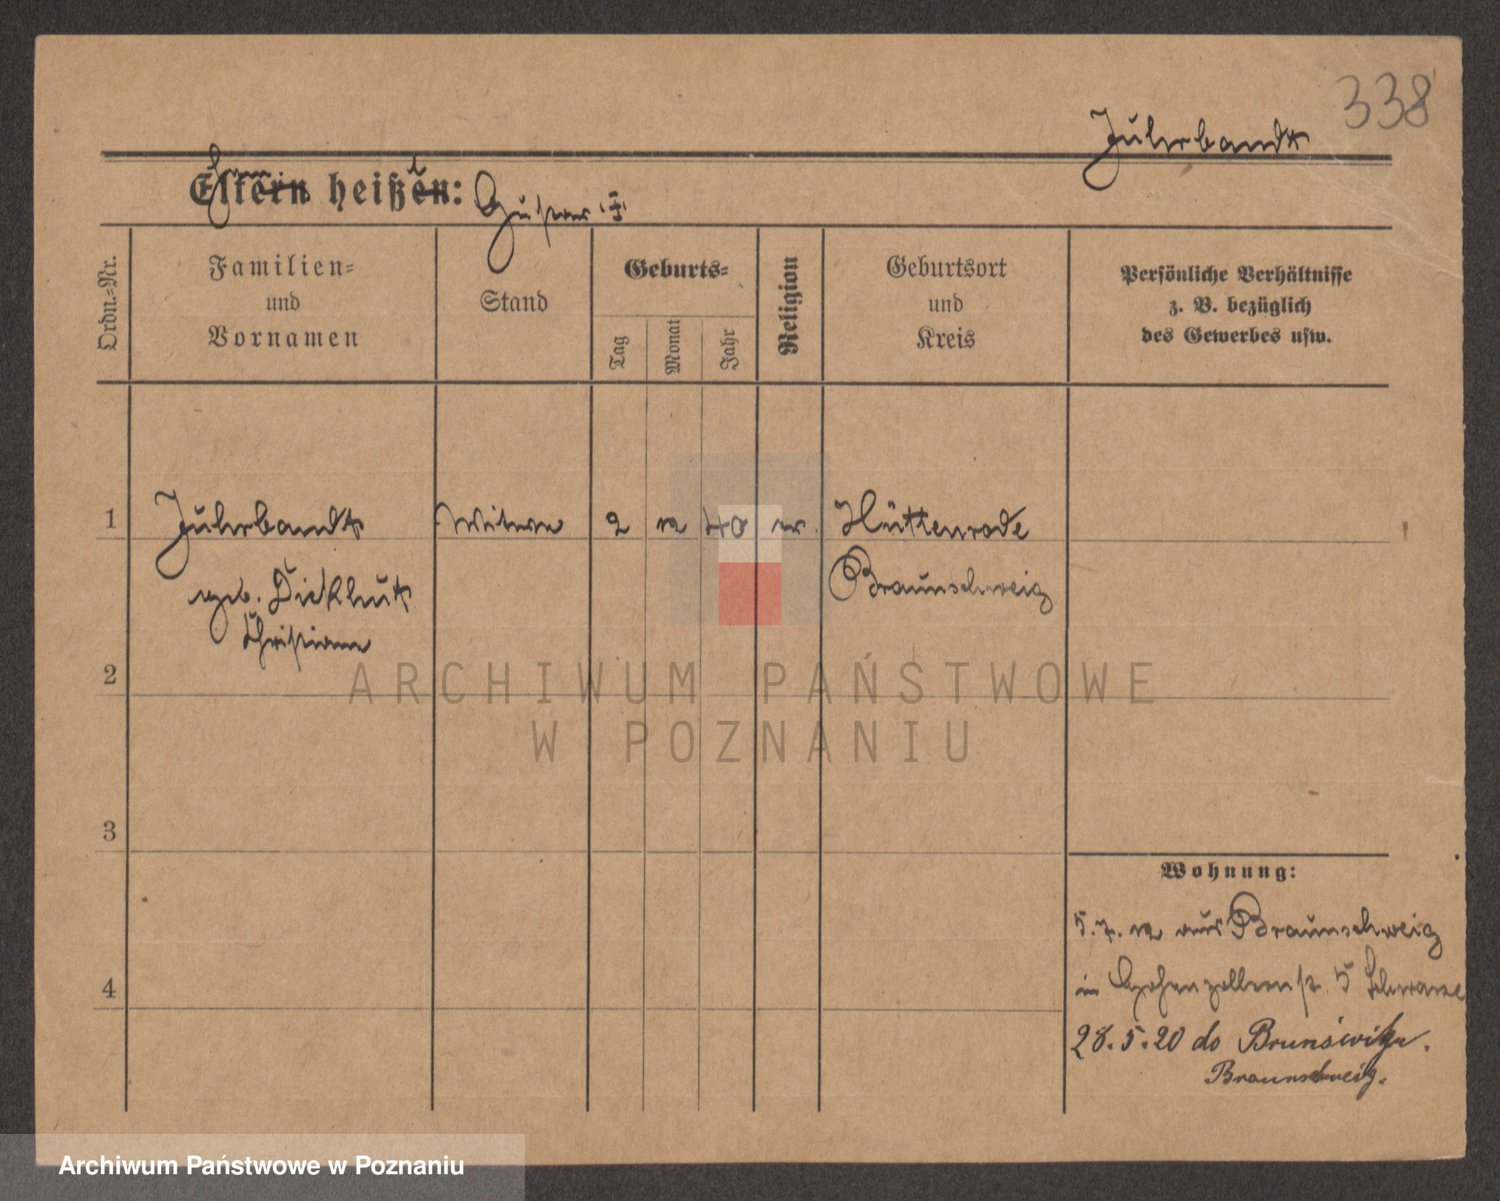 338
Juhrbandt
Eltern heißen: Gustav
Ordn.-Nr.
Familien-
und
Vornamen
Stand
Geburts-
Tag
Monat
Jahr
Religion
Geburtsort
und
Kreis
Persönliche Verhältnisse
z. B. bezüglich
des Gewerbes usw.
1 Juhrbandt Witwe 2 12 40 ev. Hüttenrode
geb. Dickhut Braunschweig
Christiane
2
3
4
Wohnung:
5.7.12 aus Braunschweig
in Hohenzollernstr. 5
28.5.20 do
Braunschweig.
ARCHIWUM PAŃSTWOWE
W POZNANIU
Archiwum Państwowe w Poznaniu